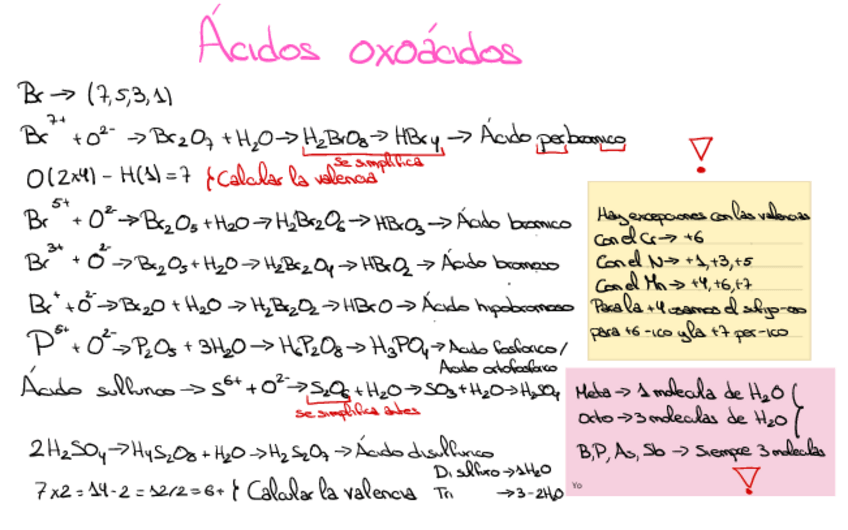 Ácidos oxoácidos
Br → (7,5,3,1)
Br⁷⁺ + O²⁻ → Br₂O₇ + H₂O → H₂BrO₈ → HBry → Ácido perbromico
se simplifica
O(2x4) - H(1) = 7 } Calcular la valencia
Br⁵⁺ + O²⁻ → Br₂O₅ + H₂O → H₂Br₂O₆ → HBrO₃ → Ácido bromico
Br³⁺ + O²⁻ → Br₂O₃ + H₂O → H₂Br₂O₄ → HBrO₂ → Ácido bromoso
Br⁺ + O²⁻ → Br₂O + H₂O → H₂Br₂O₂ → HBrO → Ácido hipobromoso
P⁵⁺ + O²⁻ → P₂O₅ + 3H₂O → H₆P₂O₈ → H₃PO₄ → Acido fosforico /
Acido ortofosforico
Ácido sulfurico → S⁶⁺ + O²⁻ → S₂O₆ + H₂O → SO₃ + H₂O → H₂SO₄
se simplifica antes
2H₂SO₄ → H₄S₂O₈ + H₂O → H₂S₂O₇ → Ácido disulfurico
Di sulfuro → 1H₂O
7x2 = 14-2 = 12/2 = 6+ } Calcular la valencia
Tri → 3-2H₂O
!
Hay excepciones con las valencias
Con el Cr → +6
Con el N → +1,+3,+5
Con el Mn → +4,+6,+7
Para la +4 usamos el sufijo-oso
para +6 -ico y la +7 per-ico
Meta → 1 molecula de H₂O
Octo → 3 moleculas de H₂O
B,P,As,Sb → Siempre 3 moleculas
!
Yo